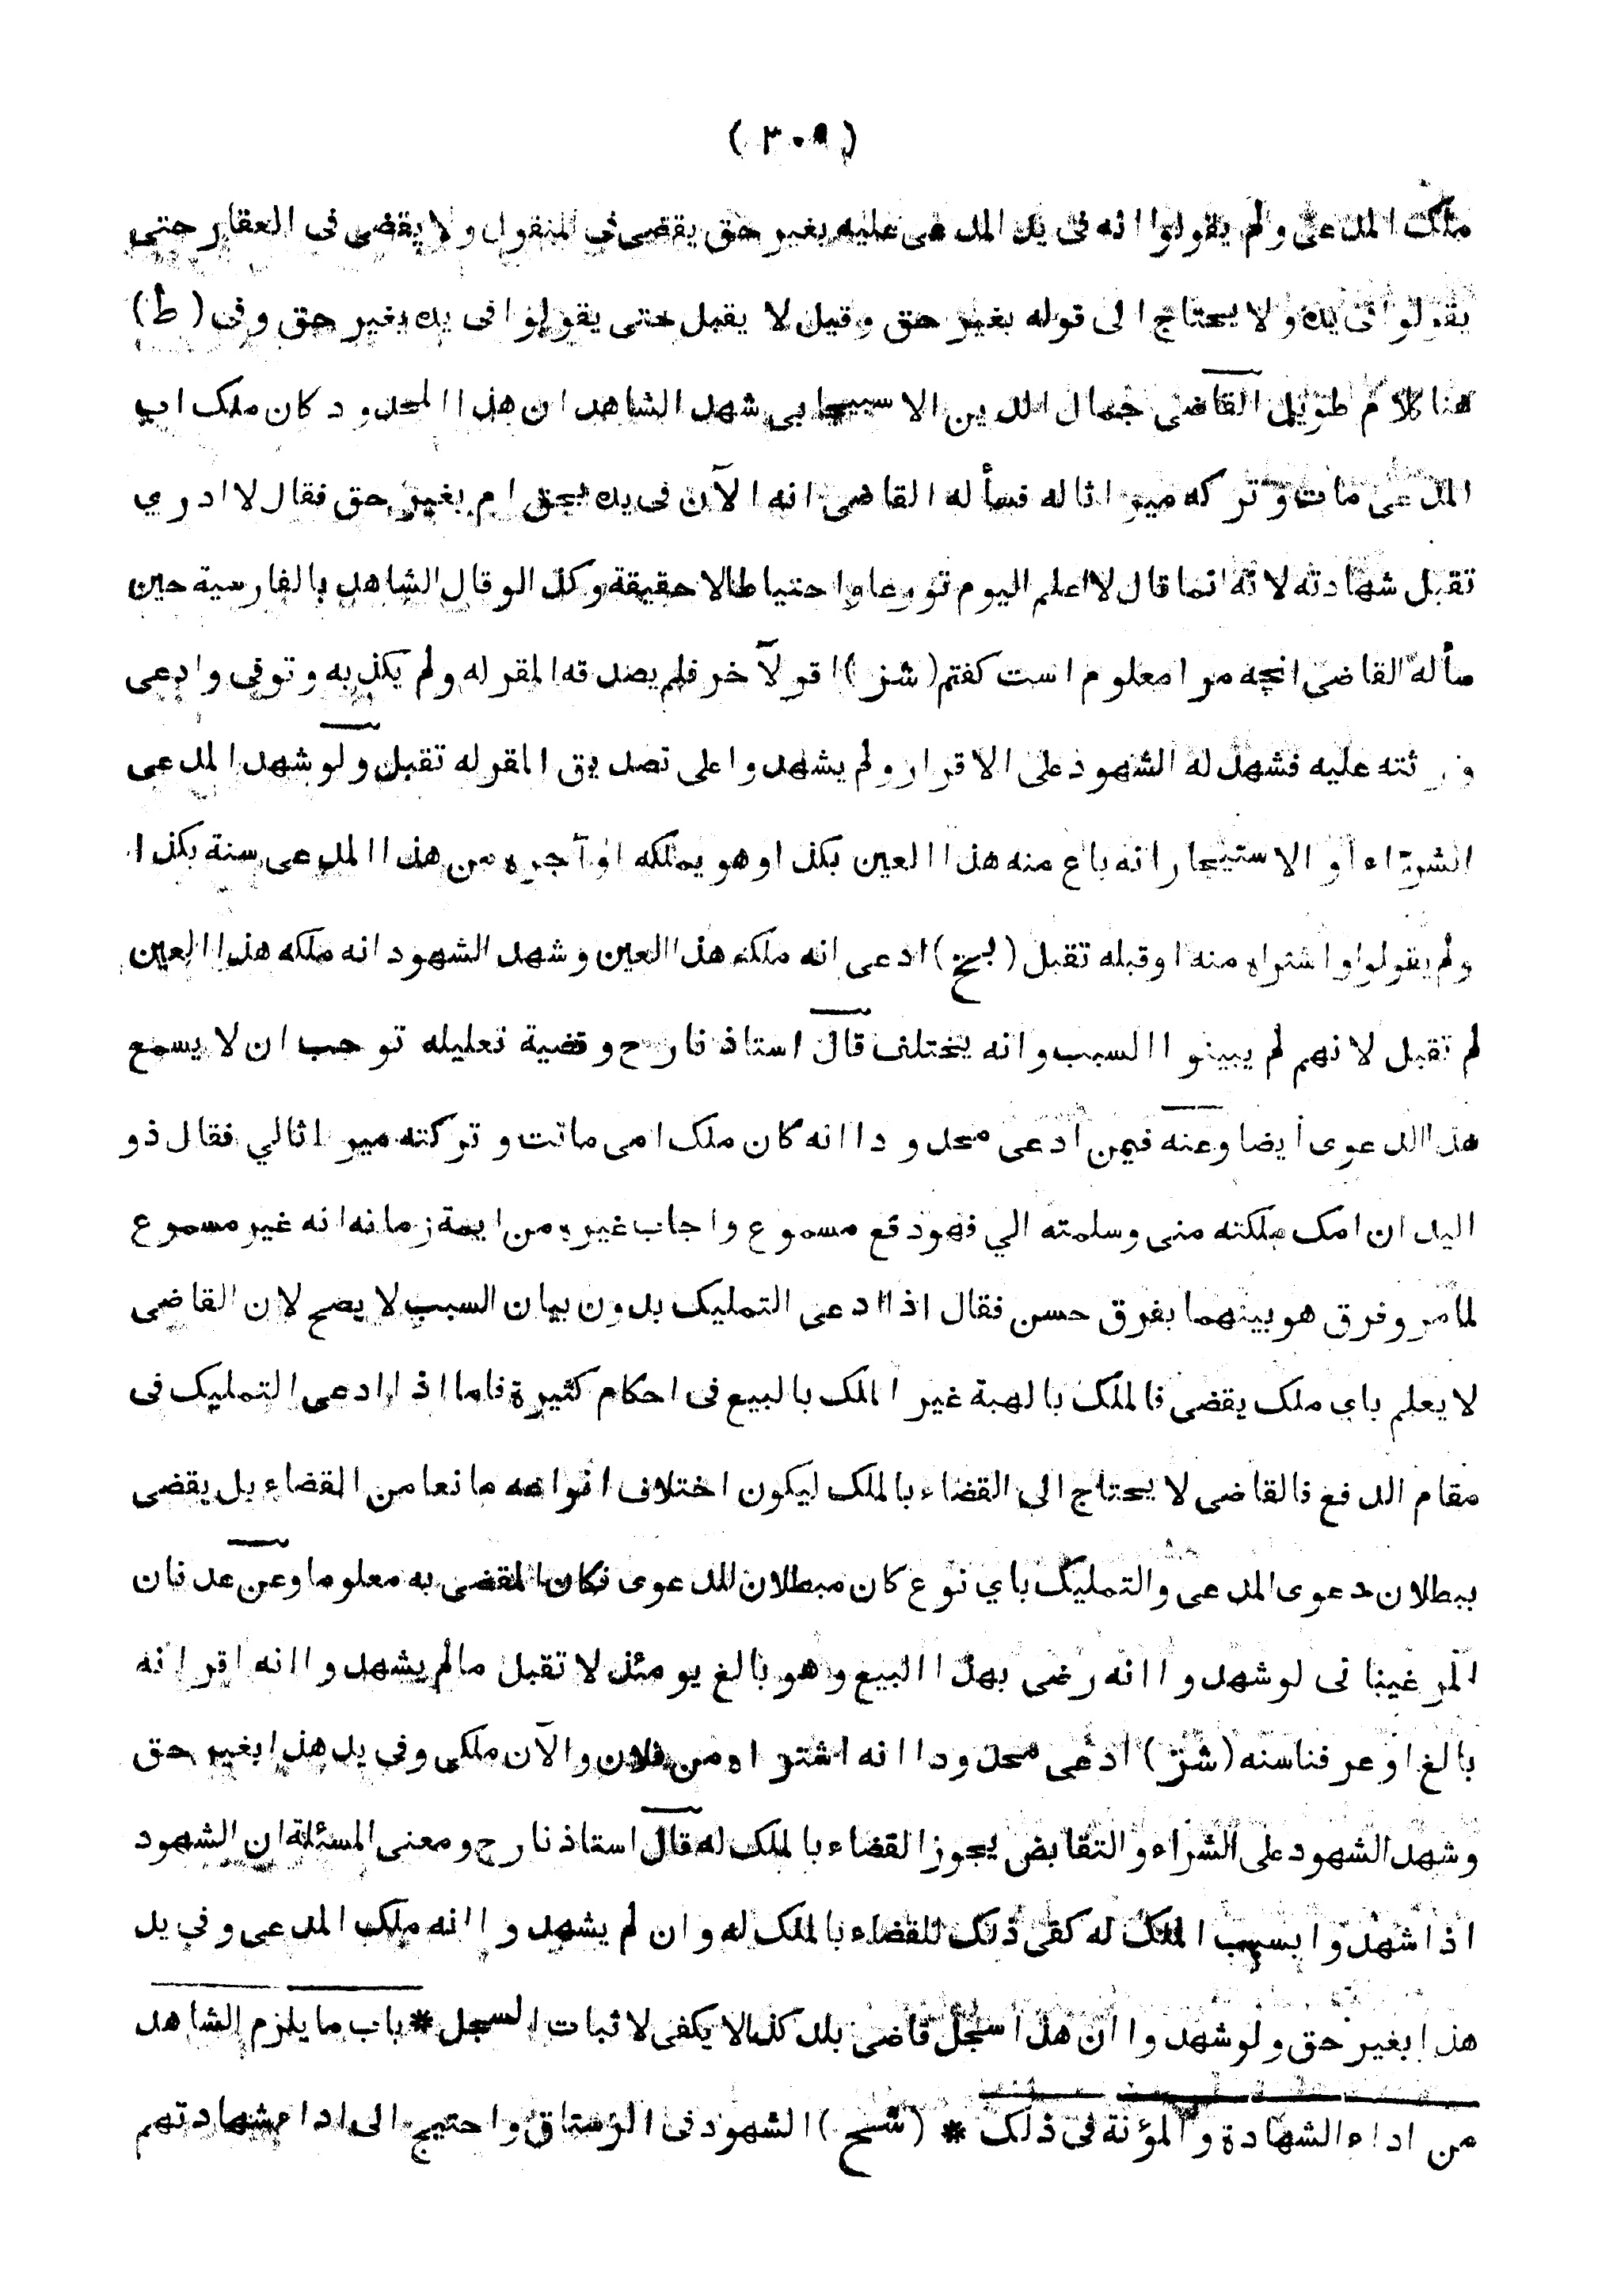 ( ٣٠٩ )
ملك المدعى ولم يقولوا انه فى يد المدعى عليه بغير حق يقضى فى المنقول ولا يقضى فى العقار حتى
يقولوا فى يده ولا يحتاج الى قوله بغير حق وقيل لا يقبل حتى يقولوا فى يده بغير حق وفى (ط)
هنا كلام طويل القاضى جمال الدين الاسبيجابي شهد الشاهد ان هذا المحدود كان ملك اب
المدعى مات وتركه ميراثا له فسأله القاضى انه الآن فى يده بحق ام بغير حق فقال لا ادري
تقبل شهادته لانه انما قال لا اعلم اليوم تورعا واحتياطا لا حقيقة وكذا لو قال الشاهد بالفارسية حين
سأله القاضى انچه مرا معلوم است كفتم (شز) اقر لآخر فلم يصدقه المقر له ولم يكذبه وتوفي وادعى
ورثته عليه فشهد له الشهود على الاقرار ولم يشهدوا على تصديق المقر له تقبل ولو شهد المدعى
الشراء او الاستيجار انه باع منه هذا العين بكذا وهو يملكه او آجره من هذا المدعى سنة بكذا
ولم يقولوا واشتراه منه او قبله تقبل (بخ) ادعى انه ملكه هذا العين وشهد الشهود انه ملكه هذا العين
لم تقبل لانهم لم يبينوا السبب وانه يختلف قال استاذنا رح وقضية تعليله توجب ان لا يسمع
هذا الدعوى أيضا وعنه فيمن ادعى محدودا انه كان ملك امى ماتت وتركته ميراثا لي فقال ذو
اليد ان امك ملكته منى وسلمته الي فهو دفع مسموع واجاب غيره من ايمة زمانه انه غير مسموع
لما مر وفرق هو بينهما بفرق حسن فقال اذا ادعى التمليك بدون بيان السبب لا يصح لان القاضى
لا يعلم باي ملك يقضى فالملك بالهبة غير الملك بالبيع فى احكام كثيرة فاما اذا ادعى التمليك فى
مقام الدفع فالقاضى لا يحتاج الي القضاء بالملك ليكون اختلاف انواعه مانعا من القضاء بل يقضى
ببطلان دعوى المدعى والتمليك باي نوع كان مبطلان للدعوى فكان المقضى به معلوما وعن عدنان
المرغينانى لو شهدوا انه رضى بهذا البيع وهو بالغ يومئذ لا تقبل مالم يشهدوا انه اقر انه
بالغ او عرفنا سنه (شز) ادعى محدودا انه اشتراه من فلان والآن ملكى وفي يد هذا بغير حق
وشهد الشهود على الشراء والتقابض يجوز القضاء بالملك له قال استاذنا رح ومعنى المسئلة ان الشهود
اذا شهدوا بسبب الملك له كفى ذلك للقضاء بالملك له وان لم يشهدوا انه ملك المدعى وفي يد
هذا بغير حق ولو شهدوا ان هذا سجل قاضى بلد كذا لا يكفى لاثبات السجل * باب ما يلزم الشاهد
من اداء الشهادة والمؤنة فى ذلك * (شح) الشهود فى الرستاق واحتيج الى اداء شهادتهم